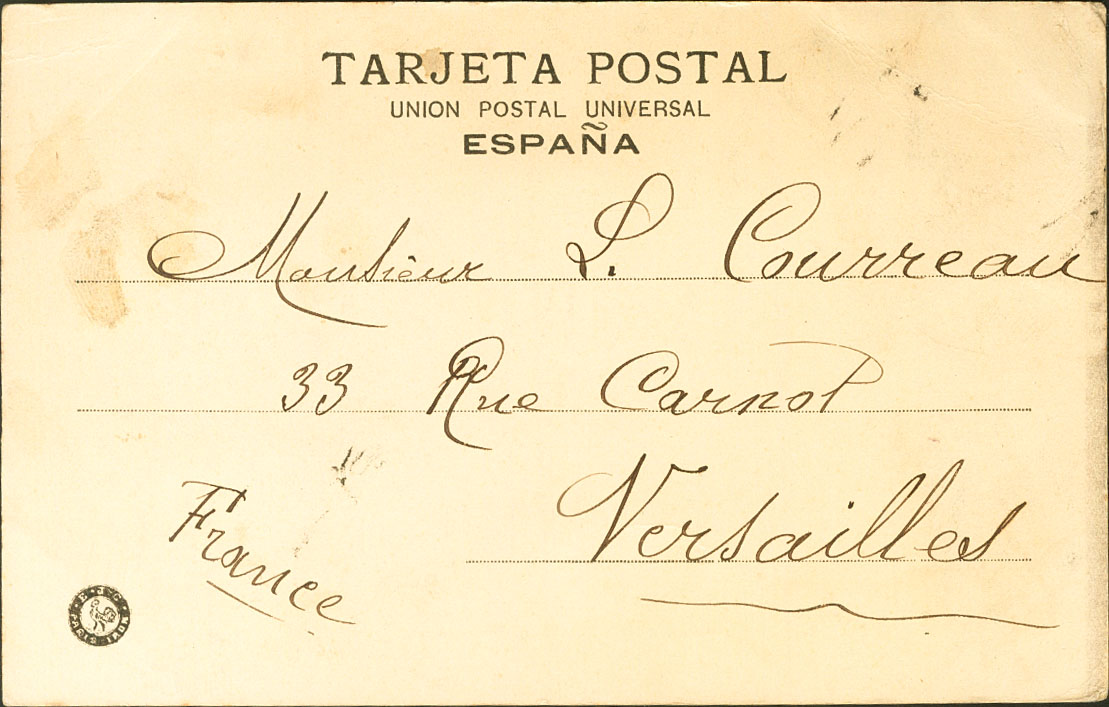 TARJETA POSTAL
UNION POSTAL UNIVERSAL
ESPAÑA
Monsieur L. Courreau
33 Rue Carnot
Versailles
France